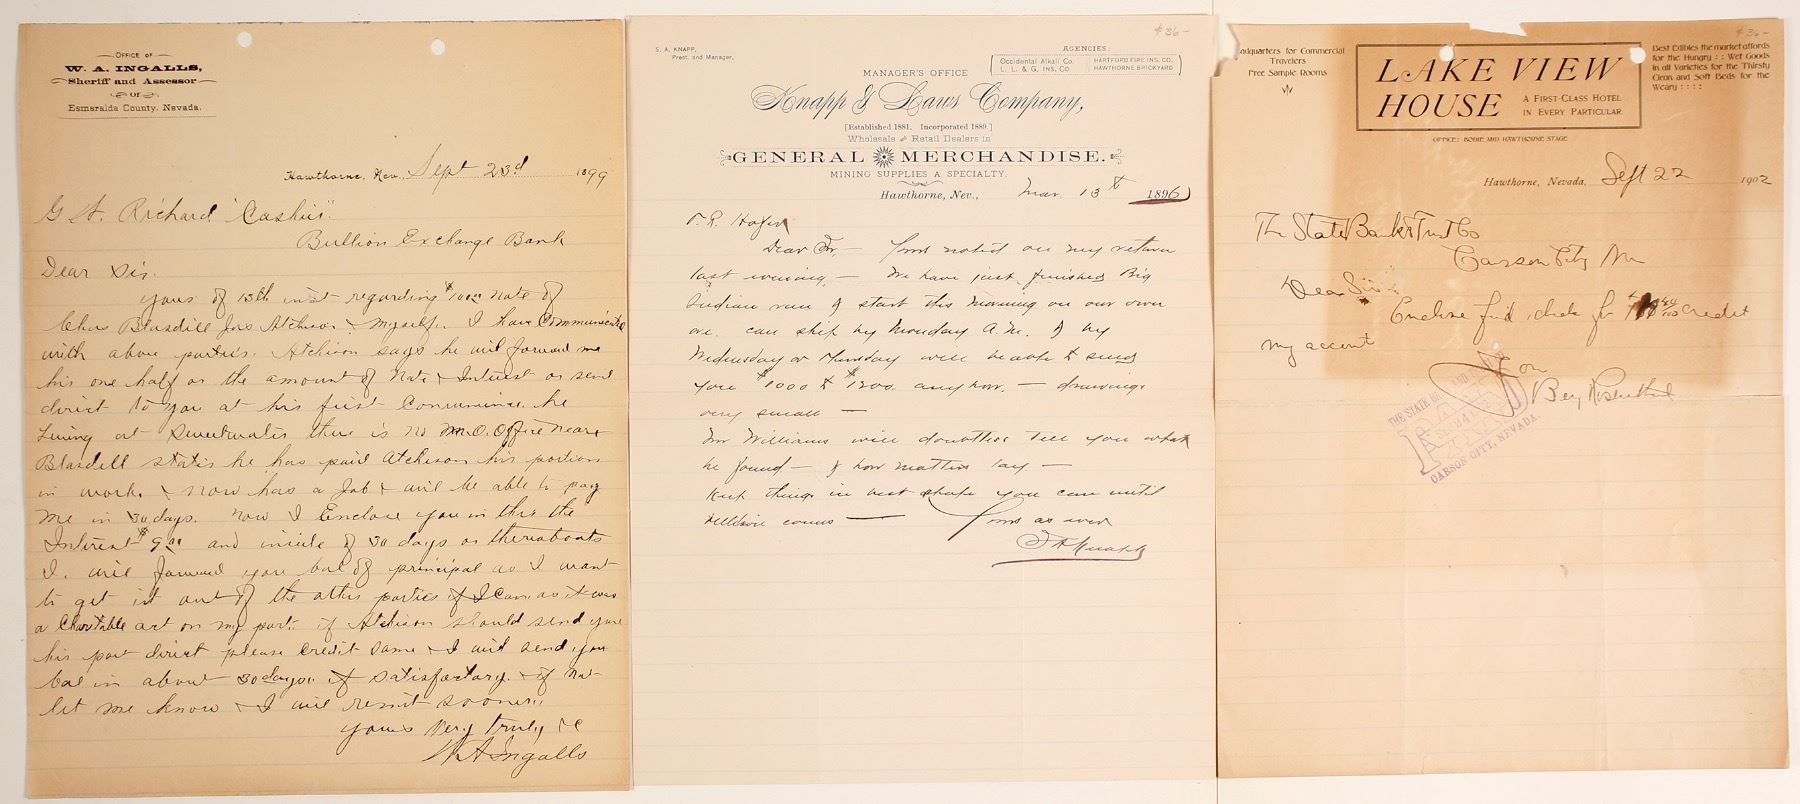 OFFICE OF
W. A. INGALLS,
Sheriff and Assessor
OF
Esmeralda County, Nevada.
Hawthorne, Nev., Sept 23d 1899
G W. Richard "Cashier".
Bullion Exchange Bank
Dear Sir.
yours of 13th inst regarding $100.00 note of
Chas Blasdill Jas Atchison & myself. I have Communicated
with above parties. Atchison says he will forward me
his one half or the amount of Note & Interest or send
direct to you at his first Convenience. he
Living at Sweetwater there is no M.O. Office near
Blasdill states he has paid Atchison his portion
in work. & now has a Job & will be able to pay
me in 30 days. Now I Enclose you in this the
Interest $9.00 and inside of 30 days or thereabouts
I. will forward you bal of principal as I want
to get it out of the other parties if I Can. as it was
a Charitable act on my part. if Atchison should send you
his part direct please Credit same & I will send you
bal in about 30 days. if satisfactory. & if not
let me know & I will remit sooner.
yours Very truly &c
W A Ingalls
$36-
S. A. KNAPP,
Prest. and Manager.
AGENCIES:
Occidental Alkali Co.
L. L. & G. INS. CO.
HARTFORD FIRE INS. CO.
HAWTHORNE BRICKYARD
MANAGER'S OFFICE
Knapp & Laws Company,
[Established 1881. Incorporated 1889.]
Wholesale and Retail Dealers in
GENERAL MERCHANDISE.
MINING SUPPLIES A SPECIALTY.
Hawthorne, Nev., Mar. 13th 1896
T. R. Hofer
Dear Sir,- Yours noted on my return
last evening. - We have just finished Big
Indian run & start this morning on our own
ore. can ship by Monday A.M. & by
Wednesday or Thursday will be able to send
you $1000 to $1200. anyhow. - drawings
very small -
Mr Williams will doubtless tell you what
he found - & how matters lay -
Keep things in best shape you can until
bullion comes - Yours as ever
S A Knapp
$36-
Headquarters for Commercial
Travelers
Free Sample Rooms
LAKE VIEW
HOUSE
A FIRST-CLASS HOTEL
IN EVERY PARTICULAR
Best Edibles the market affords
for the Hungry : : Wet Goods
in all Varieties for the Thirsty
Clean and Soft Beds for the
Weary : : : :
OFFICE: BODIE AND HAWTHORNE STAGE
Hawthorne, Nevada, Sept 22 1902
The State Bank & Trust Co
Carson City Nev
Dear Sir:
Enclose find check for credit
my account
THE STATE BANK AND
PAID
CARSON CITY, NEVADA.